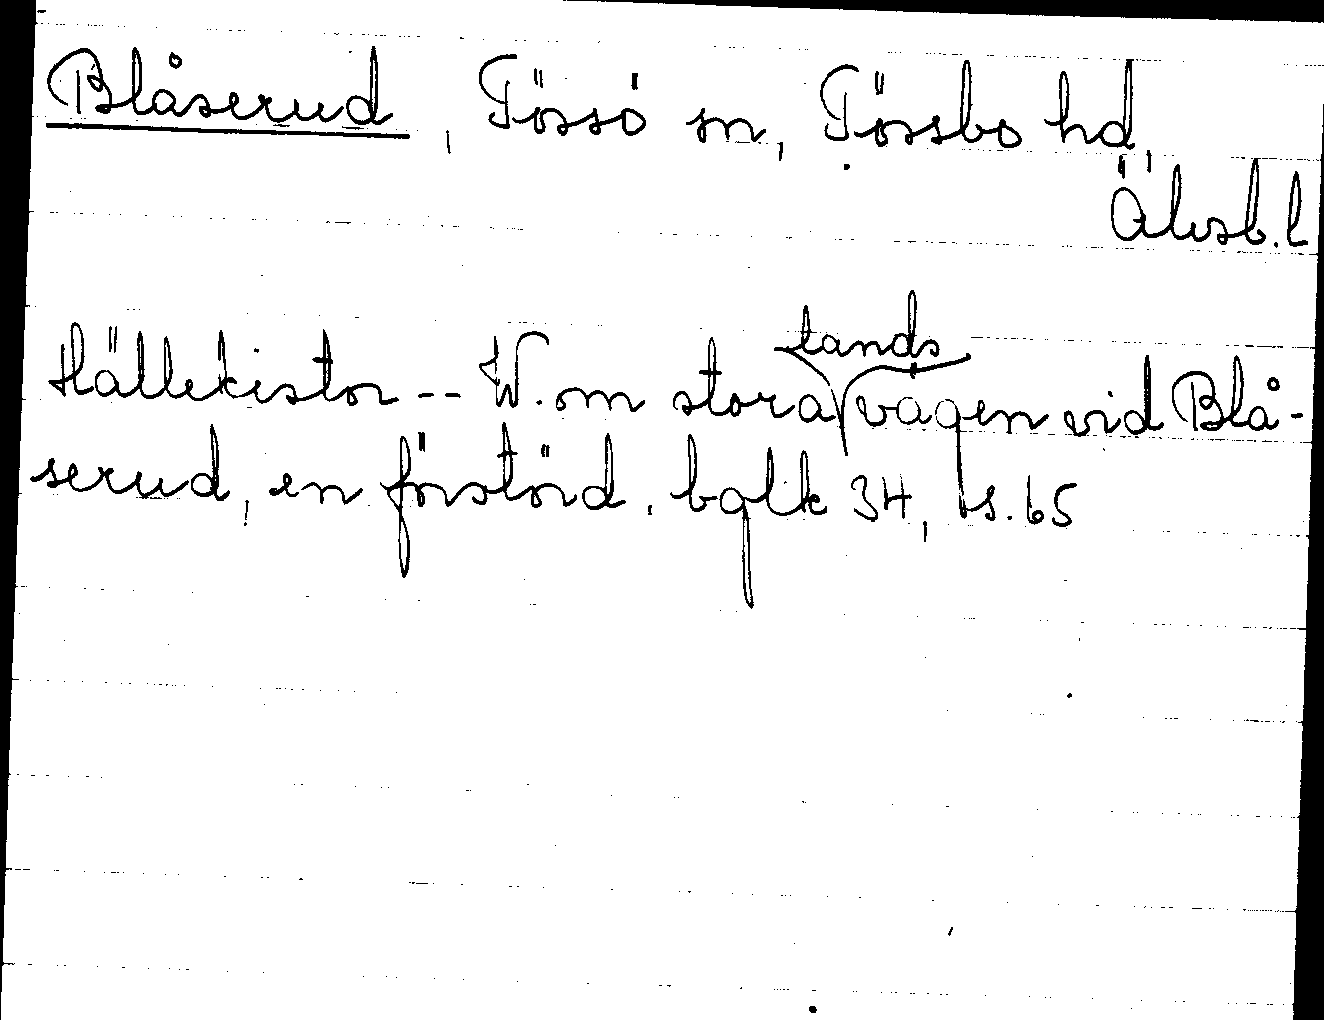 Blåserud, Tössö sn, Tössbo hd,
Älvsb. l
Hällekistor -- W. om stora landsvägen vid Blå-
serud, en förstörd. bglk 34, s. 65